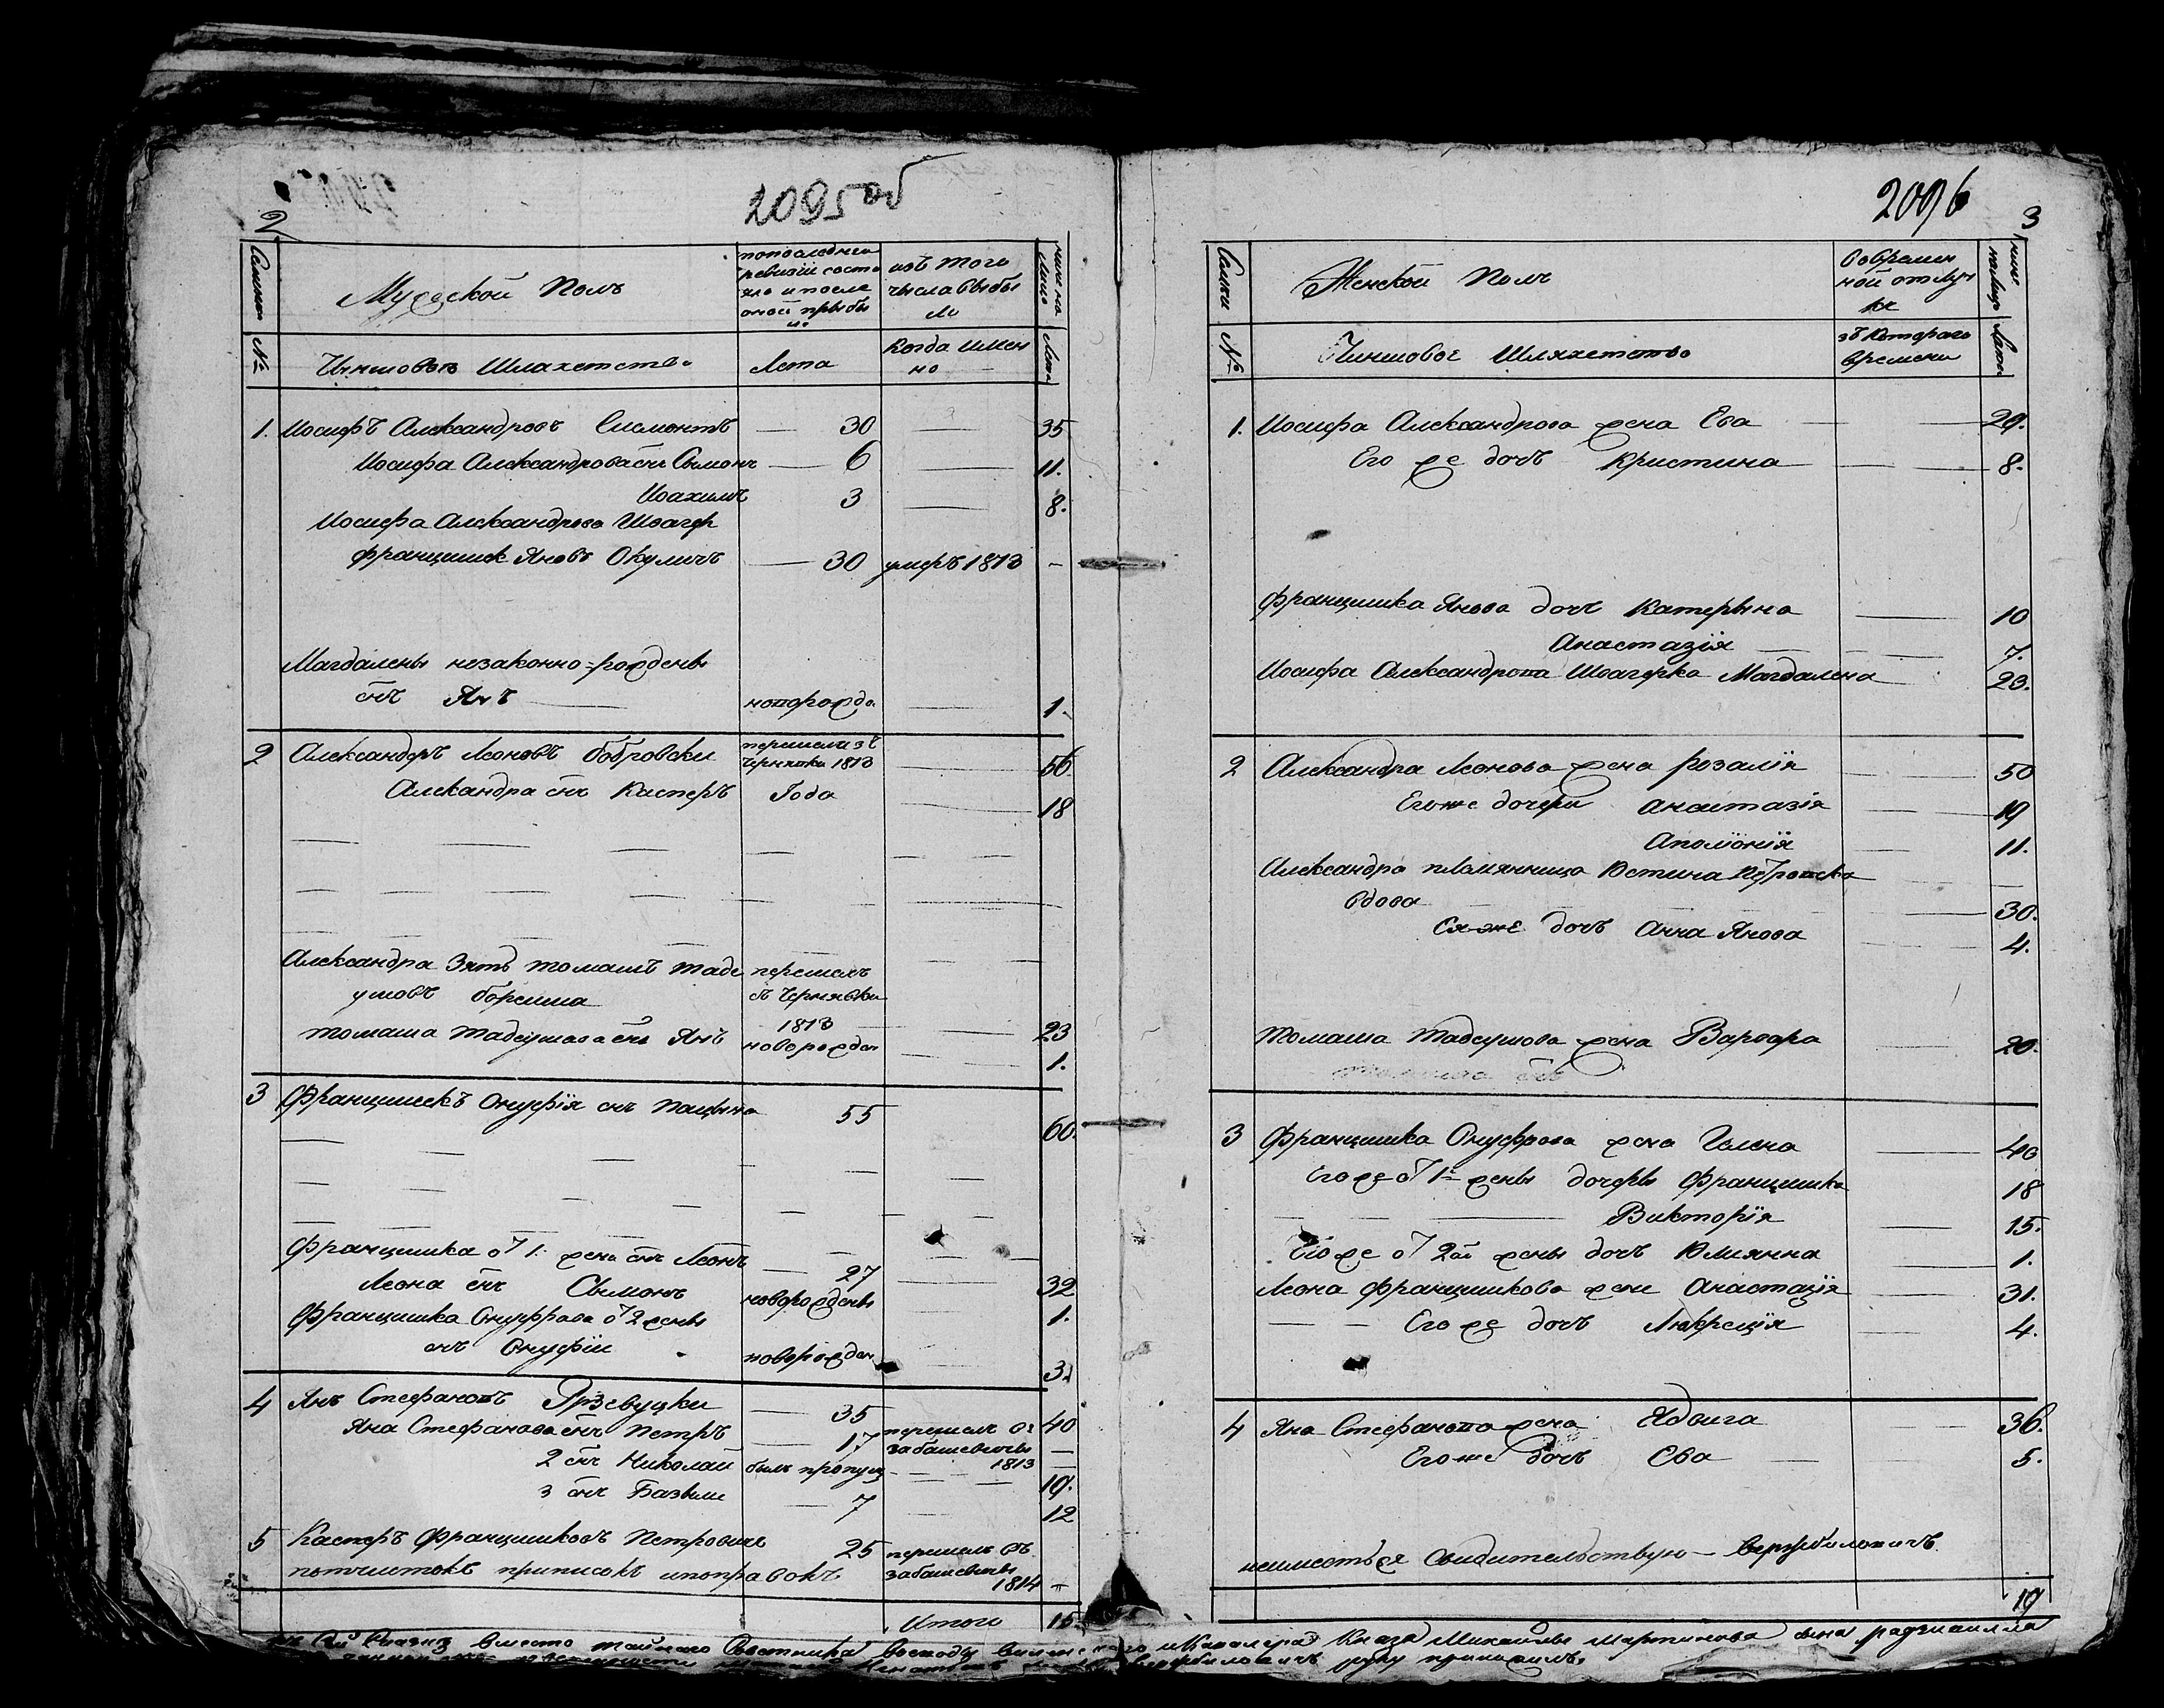 2095 об
2
Семьи
Мужеской Полъ
попоследней
ревизiи состо
яло и после
оной прибы
ло
изъ того
числа выбы
ло
ныне на
лицо
№
Чыншовое Шляхетство
Лета
Когда имен
но
Лета
1. Иосифъ Александровъ Сисмонтъ — 30 — 35
Иосифа Александрова снъ Сымонъ — 6 — 11.
Иоахимъ 3 — 8.
Иосифа Александрова Швагер
францишк Яновъ Окуличъ — 30 умеръ 1813 —
Магдалены незаконно-рождены
снъ Янъ — новорожде. — 1.
2 Александеръ Леоновъ бобровски
перешелъ зъ
Чернявки 1813 — 56
Александра снъ Касперъ Года — 18
Александра Зять томашъ таде
ушовъ борейша
перешелъ
съ Чернявки
1813 — 23
томаша тадеушова снъ Янъ новорожден — 1.
3 Францишекъ Онуфрiя снъ 55 60.
Францишка от 1. жены снъ Леонъ — 27 — 32
Леона снъ Сымонъ новорождены 1.
Францишка Онуфрова от 2 жены
снъ Онуфрiй новорожден 3
4 Янъ Стефановъ Ржевуцки — 35 40
Яна Стефанова снъ Петръ — 17 перешелъ от
забашевичы
1813 —
2 снъ Николай былъ пропущ — 19.
3 снъ Базыли — 7 — 12
5 Касперъ Францишковъ Петровичъ 25 перешелъ въ
забашевичы
1814 —
почистокъ приписокъ ипоправокъ
Итого 15
2096
3
Семьи
Женской Полъ
Во времен
ной отлуч
ке
ныне
налицо
№
Чиншовое Шляхетство
зъ Которого
времени
Лета
1. Иосифа Александрова жена Ева — 29.
Его же дочь Кристина — 8.
Францишка Янова дочь Катерына — 10
Анастазiя — 7.
Иосифа Александрова Швагерка Магдалена — 23.
2 Александра Леонова жена Розалiя — 50
Егоже дочери Анастазiя — 19
Аполiонiя — 11.
Александра племянница Юстина
вдова — 30.
Ея-же дочь Анна Янова — 4.
Томаша Тадеушова жена Варвара — 20.
3 Францишка Онуфрова жена Гелена — 40
Его же от 1й жены дочеры Францишка 18
Викторiя — 15.
Его же от 2ой жены дочь Юлиянна — 1.
Леона Францишкова жена Анастазiя — 31.
Его же дочь Люкрецiя — 4.
4 Яна Стефанова жена Ядвига — 36.
Егоже дочь Ева — 5.
неиместься Свидительствую — Вержбиловичъ
19
Сей Сказки вместо тайного Советника воеводы виленского и Кавалера Князя Михайлы Мартинова сына радзивилла
Вержбиловичъ руку приложилъ.